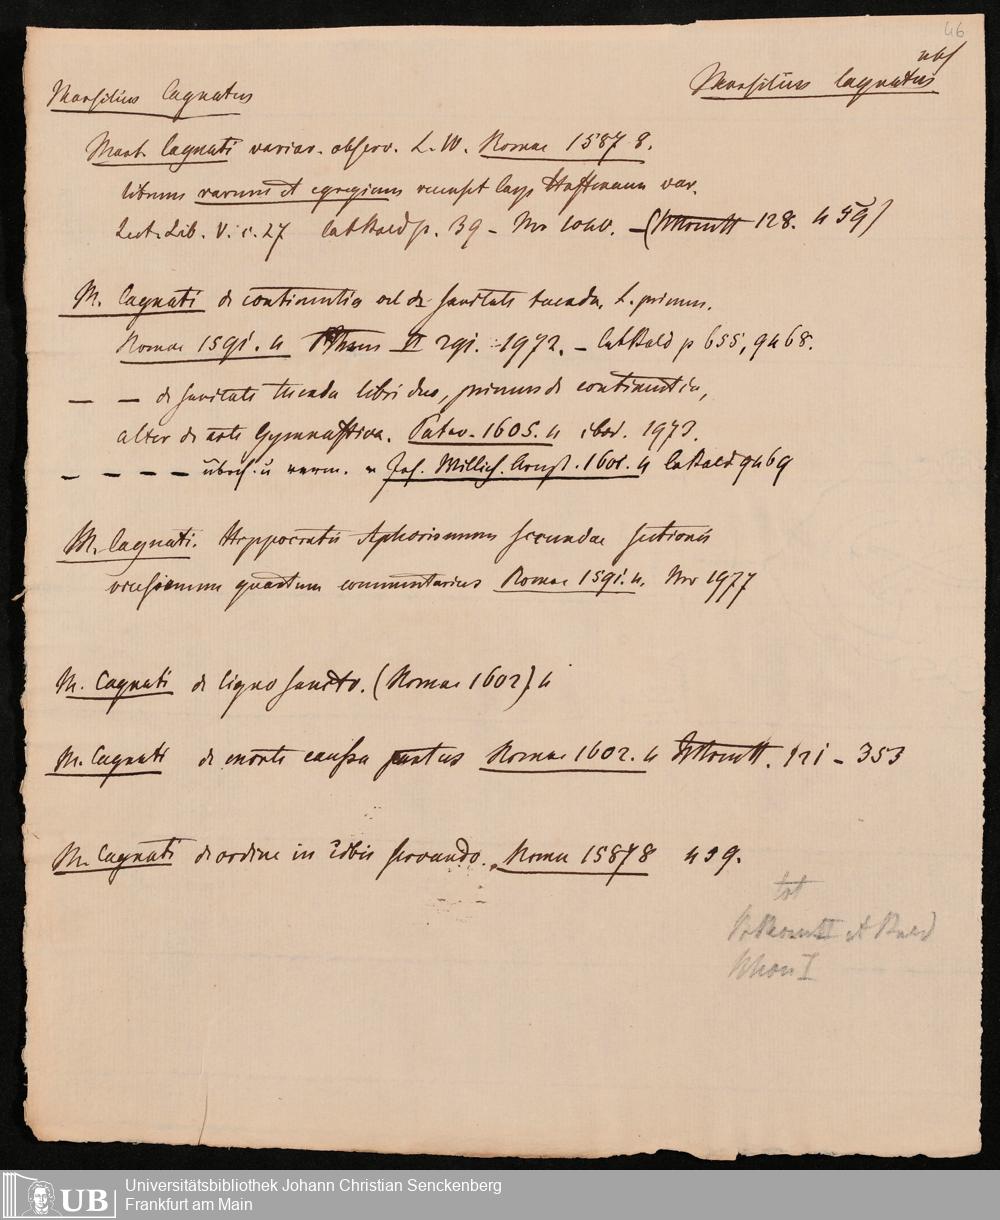 46
abs
Marsilius Cagnatus
Marsilius Cagnatus
Mars. Cagnati variar. observ. L. IV. Romae 1587 8.
librum rarum et egregium Casp Hoffmann var.
Lect. Lib. V. c. 27 p. 39 - No 1040. - ( 128. 4 59)
M. Cagnati de continentia vel de sanitate tuenda, L. primus.
Romae 1591. 4 II 291. 1972. - Bald p 655, 9468.
— — de sanitate tuenda libri duo, primus de continentia,
alter de arte Gymnastica. Patav. 1605. 4 ibid. 1973.
— — — — Jos. Willich. 1601. 4 Bald 9469
M. Cagnati. Hippocratis Aphorismum secundae sectionis
vicesimum quartum commentarius Romae 1591. 4. No 1977
M. Cagnati de Ligno sancto. (Romae 1602). 4
M. Cagnati de morte caussa partus Romae 1602. 4 121 - 353
M. Cagnati de ordine in cibis servando. Romae 1587 8 459.
et Bald
I
UB
Universitätsbibliothek Johann Christian Senckenberg
Frankfurt am Main